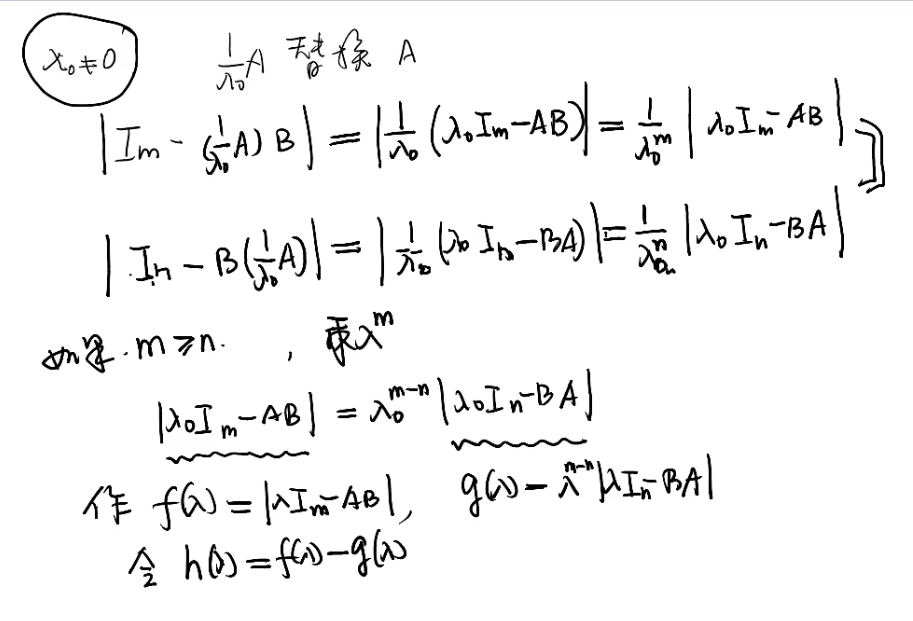 λ₀≠0 1/λ₀ A 替换 A
|Iₘ - (1/λ₀ A) B| = |1/λ₀ (λ₀Iₘ-AB)| = 1/λ₀ᵐ |λ₀Iₘ-AB|
|Iₙ - B(1/λ₀ A)| = |1/λ₀ (λ₀Iₙ-BA)| = 1/λ₀ⁿ |λ₀Iₙ-BA|
如果. m≥n. , 乘λᵐ
|λ₀Iₘ-AB| = λ₀ᵐ⁻ⁿ |λ₀Iₙ-BA|
作 f(λ)=|λIₘ-AB|, g(λ)=λᵐ⁻ⁿ|λIₙ-BA|
令 h(λ)=f(λ)-g(λ)